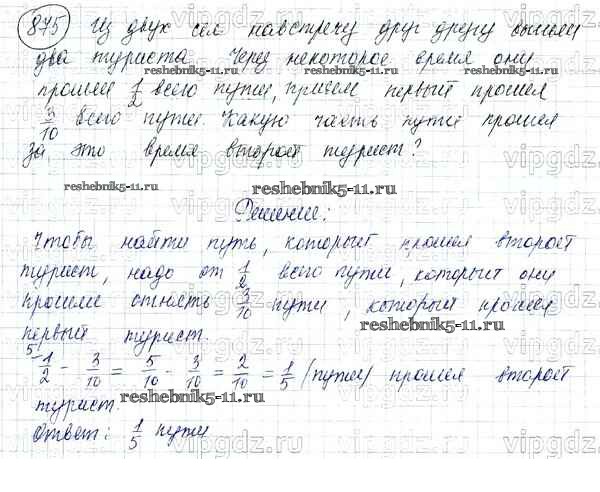 875 Из двух сел навстречу друг другу вышли
два туриста. Через некоторое время они
прошли 1/2 всего пути, причем первый прошел
3/10 всего пути. Какую часть пути прошел
за это время второй турист?
Решение:
Чтобы найти путь, который прошел второй
турист, надо от 1/2 всего пути, который они
прошли отнять 3/10 пути, который прошел
первый турист.
5 1/2 - 3/10 = 5/10 - 3/10 = 2/10 = 1/5 (пути) прошел второй
турист.
Ответ: 1/5 пути
reshebnik5-11.ru
reshebnik5-11.ru
reshebnik5-11.ru
reshebnik5-11.ru
reshebnik5-11.ru
reshebnik5-11.ru
vipgdz.ru
vipgdz.ru
vipgdz.ru